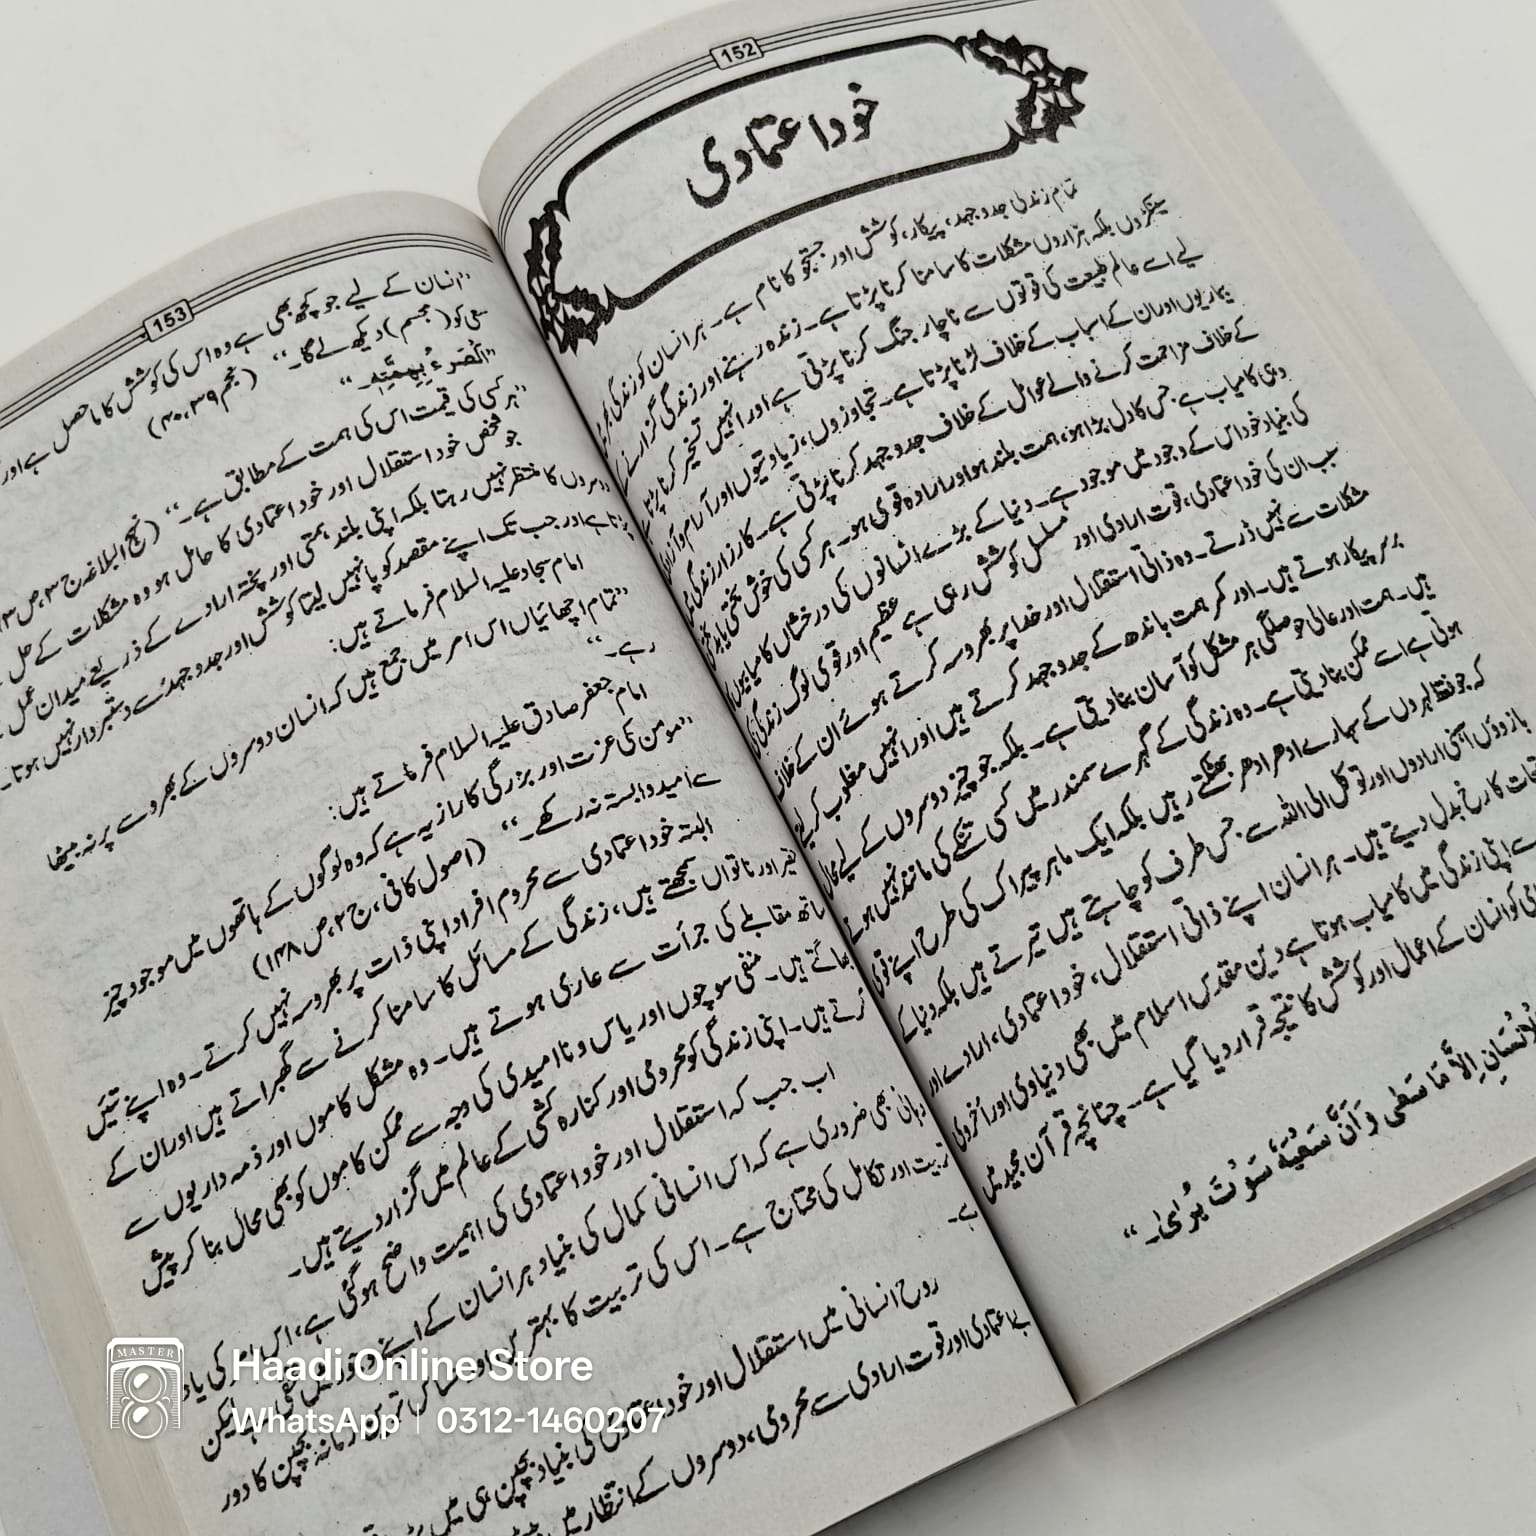 152
خود اعتمادی
تمام زندگی جدوجہد، پیکار، کوشش اور جستجو کا نام ہے۔ ہر انسان کو زندگی بھر
سینکڑوں بلکہ ہزاروں مشکلات کا سامنا کرنا پڑتا ہے۔ زندہ رہنے اور زندگی گزارنے کے
لیے اسے عالم طبیعت کی قوتوں سے ناچار جنگ کرنا پڑتی ہے اور انہیں تسخیر کرنا پڑتا ہے
بیماریوں اور ان کے اسباب کے خلاف لڑنا پڑتا ہے۔ تجاوزوں، زیادتیوں اور آرام و آزادی
کے خلاف مزاحمت کرنے والے عوامل کے خلاف جدوجہد کرنا پڑتی ہے۔ کارزار زندگی میں
وہی کامیاب ہے جس کا دل بڑا ہو، ہمت بلند ہو اور ارادہ قوی ہو۔ ہر کسی کی خوش بختی یا بدبختی
کی بنیاد خود اس کے وجود میں موجود ہے۔ دنیا کے بڑے انسانوں کی درخشاں کامیابیوں کا
سبب ان کی خود اعتمادی، قوت ارادی اور مسلسل کوشش رہی ہے عظیم اور قوی لوگ زندگی کی
مشکلات سے نہیں ڈرتے۔ وہ ذاتی استقلال اور خدا پر بھروسہ کرتے ہوئے ان کے خلاف
برسرپیکار ہوتے ہیں۔ اور کمر ہمت باندھ کے جدوجہد کرتے ہیں اور انہیں مغلوب کر لیتے
ہیں۔ ہمت اور عالی حوصلگی ہر مشکل کو آسان بنا دیتی ہے۔ بلکہ جو چیز دوسروں کے لیے محال
ہوتی ہے اسے ممکن بنا دیتی ہے۔ وہ زندگی کے گہرے سمندر میں کسی تنکے کی مانند نہیں ہوتے
کہ جو فقط لہروں کے سہارے ادھر ادھر بھٹکتے رہیں بلکہ ایک ماہر پیراک کی طرح اپنے قوی
بازووں آہنی ارادوں اور توکل الی اللہ سے جس طرف کو چاہتے ہیں تیرتے ہیں بلکہ دنیا کے
کا رخ بدل دیتے ہیں۔ ہر انسان اپنے ذاتی استقلال، خود اعتمادی، ارادے اور
سے اپنی زندگی میں کامیاب ہوتا ہے دین مقدس اسلام میں بھی دنیاوی اور اخروی
کو انسان کے اعمال اور کوشش کا نتیجہ قرار دیا گیا ہے۔ چنانچہ قرآن مجید میں
ہے۔
لِلْاِنْسَانِ اِلَّا مَا سَعٰی وَ اَنَّ سَعْیَهٗ سَوْفَ یُرٰی۔“
153
”انسان کے لیے جو کچھ بھی ہے وہ اس کی کوشش کا ماحصل ہے اور
سعی کو (مجسم) دیکھ لے گا۔“ (نجم ۳۹، ۴۰)
”اَلْمَرْءُ بِهِمَّتِهٖ۔“
”ہر کسی کی قیمت اس کی ہمت کے مطابق ہے۔“ (نہج البلاغہ ج ۳، ص
جو شخص خود استقلال اور خود اعتمادی کا حامل ہو وہ مشکلات کے حل
دوسروں کا منتظر نہیں رہتا بلکہ اپنی بلند ہمتی اور پختہ ارادے کے ذریعے میدان عمل
ہے اور جب تک اپنے مقصد کو پا نہیں لیتا کوشش اور جدوجہد سے دستبردار نہیں ہوتا۔
امام سجاد علیہ السلام فرماتے ہیں:
”تمام اچھائیاں اس امر میں جمع ہیں کہ انسان دوسروں کے بھروسے پر نہ بیٹھا
رہے۔“
امام جعفر صادق علیہ السلام فرماتے ہیں:
”مومن کی عزت اور بزرگی کا راز یہ ہے کہ وہ لوگوں کے ہاتھوں میں موجود چیز
سے امید وابستہ نہ رکھے۔“ (اصول کافی، ج ۲، ص ۱۴۸)
البتہ خود اعتمادی سے محروم افراد اپنی ذات پر بھروسہ نہیں کرتے۔ وہ اپنے تئیں
حقیر اور ناتواں سمجھتے ہیں، زندگی کے مسائل کا سامنا کرنے سے گھبراتے ہیں اور ان کے
ساتھ مقابلے کی جرأت سے عاری ہوتے ہیں۔ وہ مشکل کاموں اور ذمہ داریوں سے
بھاگتے ہیں۔ منفی سوچوں اور یاس و ناامیدی کی وجہ سے ممکن کاموں کو بھی محال بنا کر پیش
کرتے ہیں۔ اپنی زندگی کو محرومی اور کنارہ کشی کے عالم میں گزار دیتے ہیں۔
اب جب کہ استقلال اور خود اعتمادی کی اہمیت واضح ہو گئی ہے، اس امر کی یاد
دہانی بھی ضروری ہے کہ اس انسانی کمال کی بنیاد ہر انسان کے اپنے وجود میں مخفی ہے لیکن
تربیت اور تکامل کی محتاج ہے۔ اس کی تربیت کا بہترین اور حساس ترین زمانہ بچپن کا دور
روح انسانی میں استقلال اور خود اعتمادی کی بنیاد بچپن ہی میں
بے اعتمادی اور قوت ارادی سے محرومی، دوسروں کے انتظار میں
MASTER
Haadi Online Store
WhatsApp | 0312-1460207